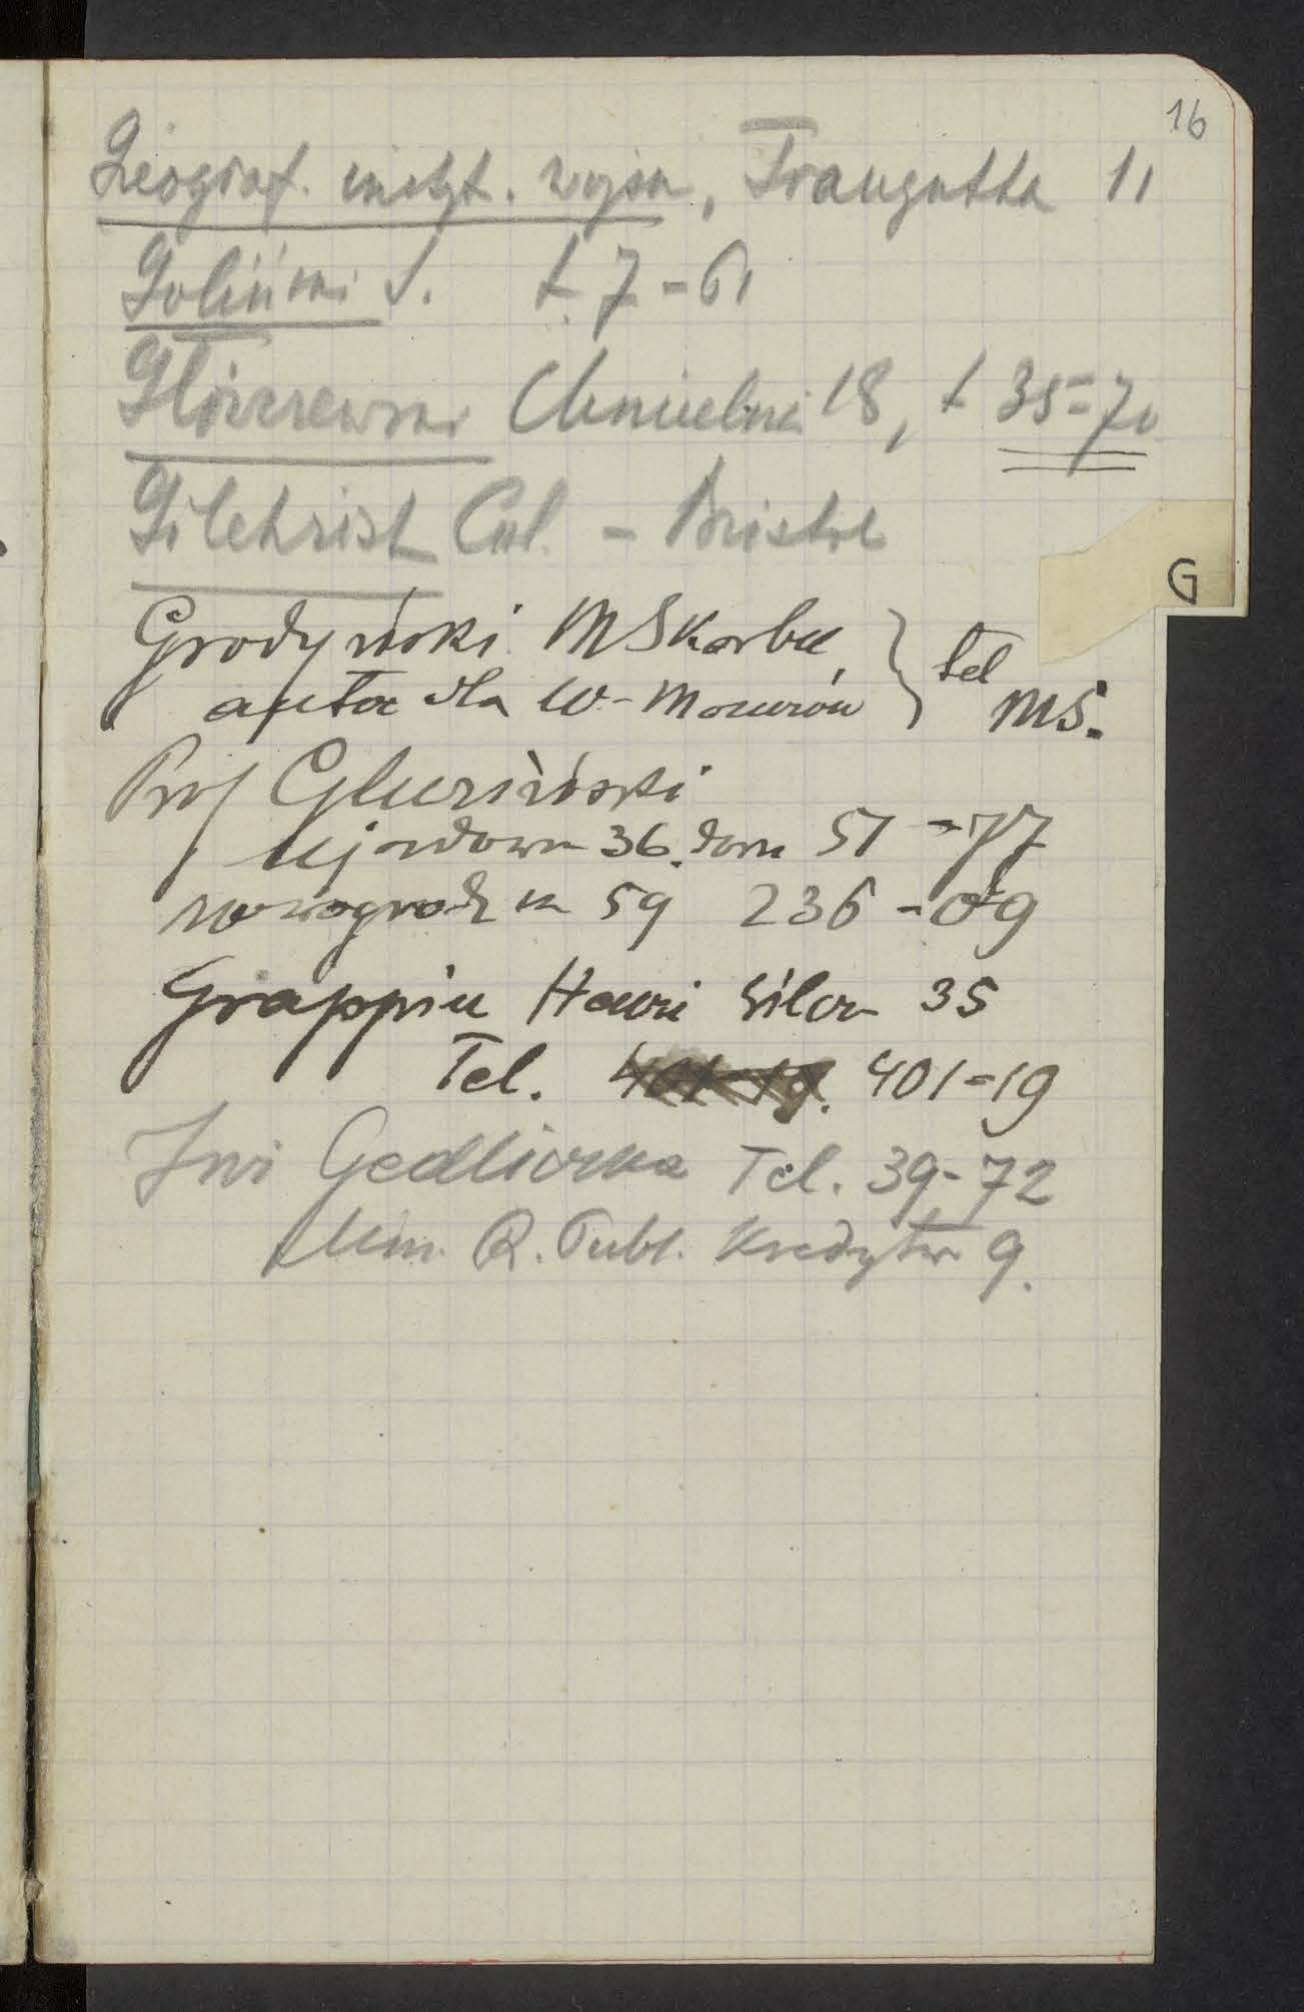 16
Geograf. instyt. wojsk, Traugutta 11
Goliński S. t. 7-61
Główczewski Chmielna 18, t 35-70
Gilchrist Col. - Bristol
G
Grodyński MSkarbu,
auta dla W-Mazurów } tel MS.
Prof Gluziński
Ujazdowa 36. dom 51-77
nowogrodzka 59 236-09
Grappin Henri 35
Tel. 401-19
Gedliczka Tel. 39-72
Min. R. Publ. Kredytowa 9.